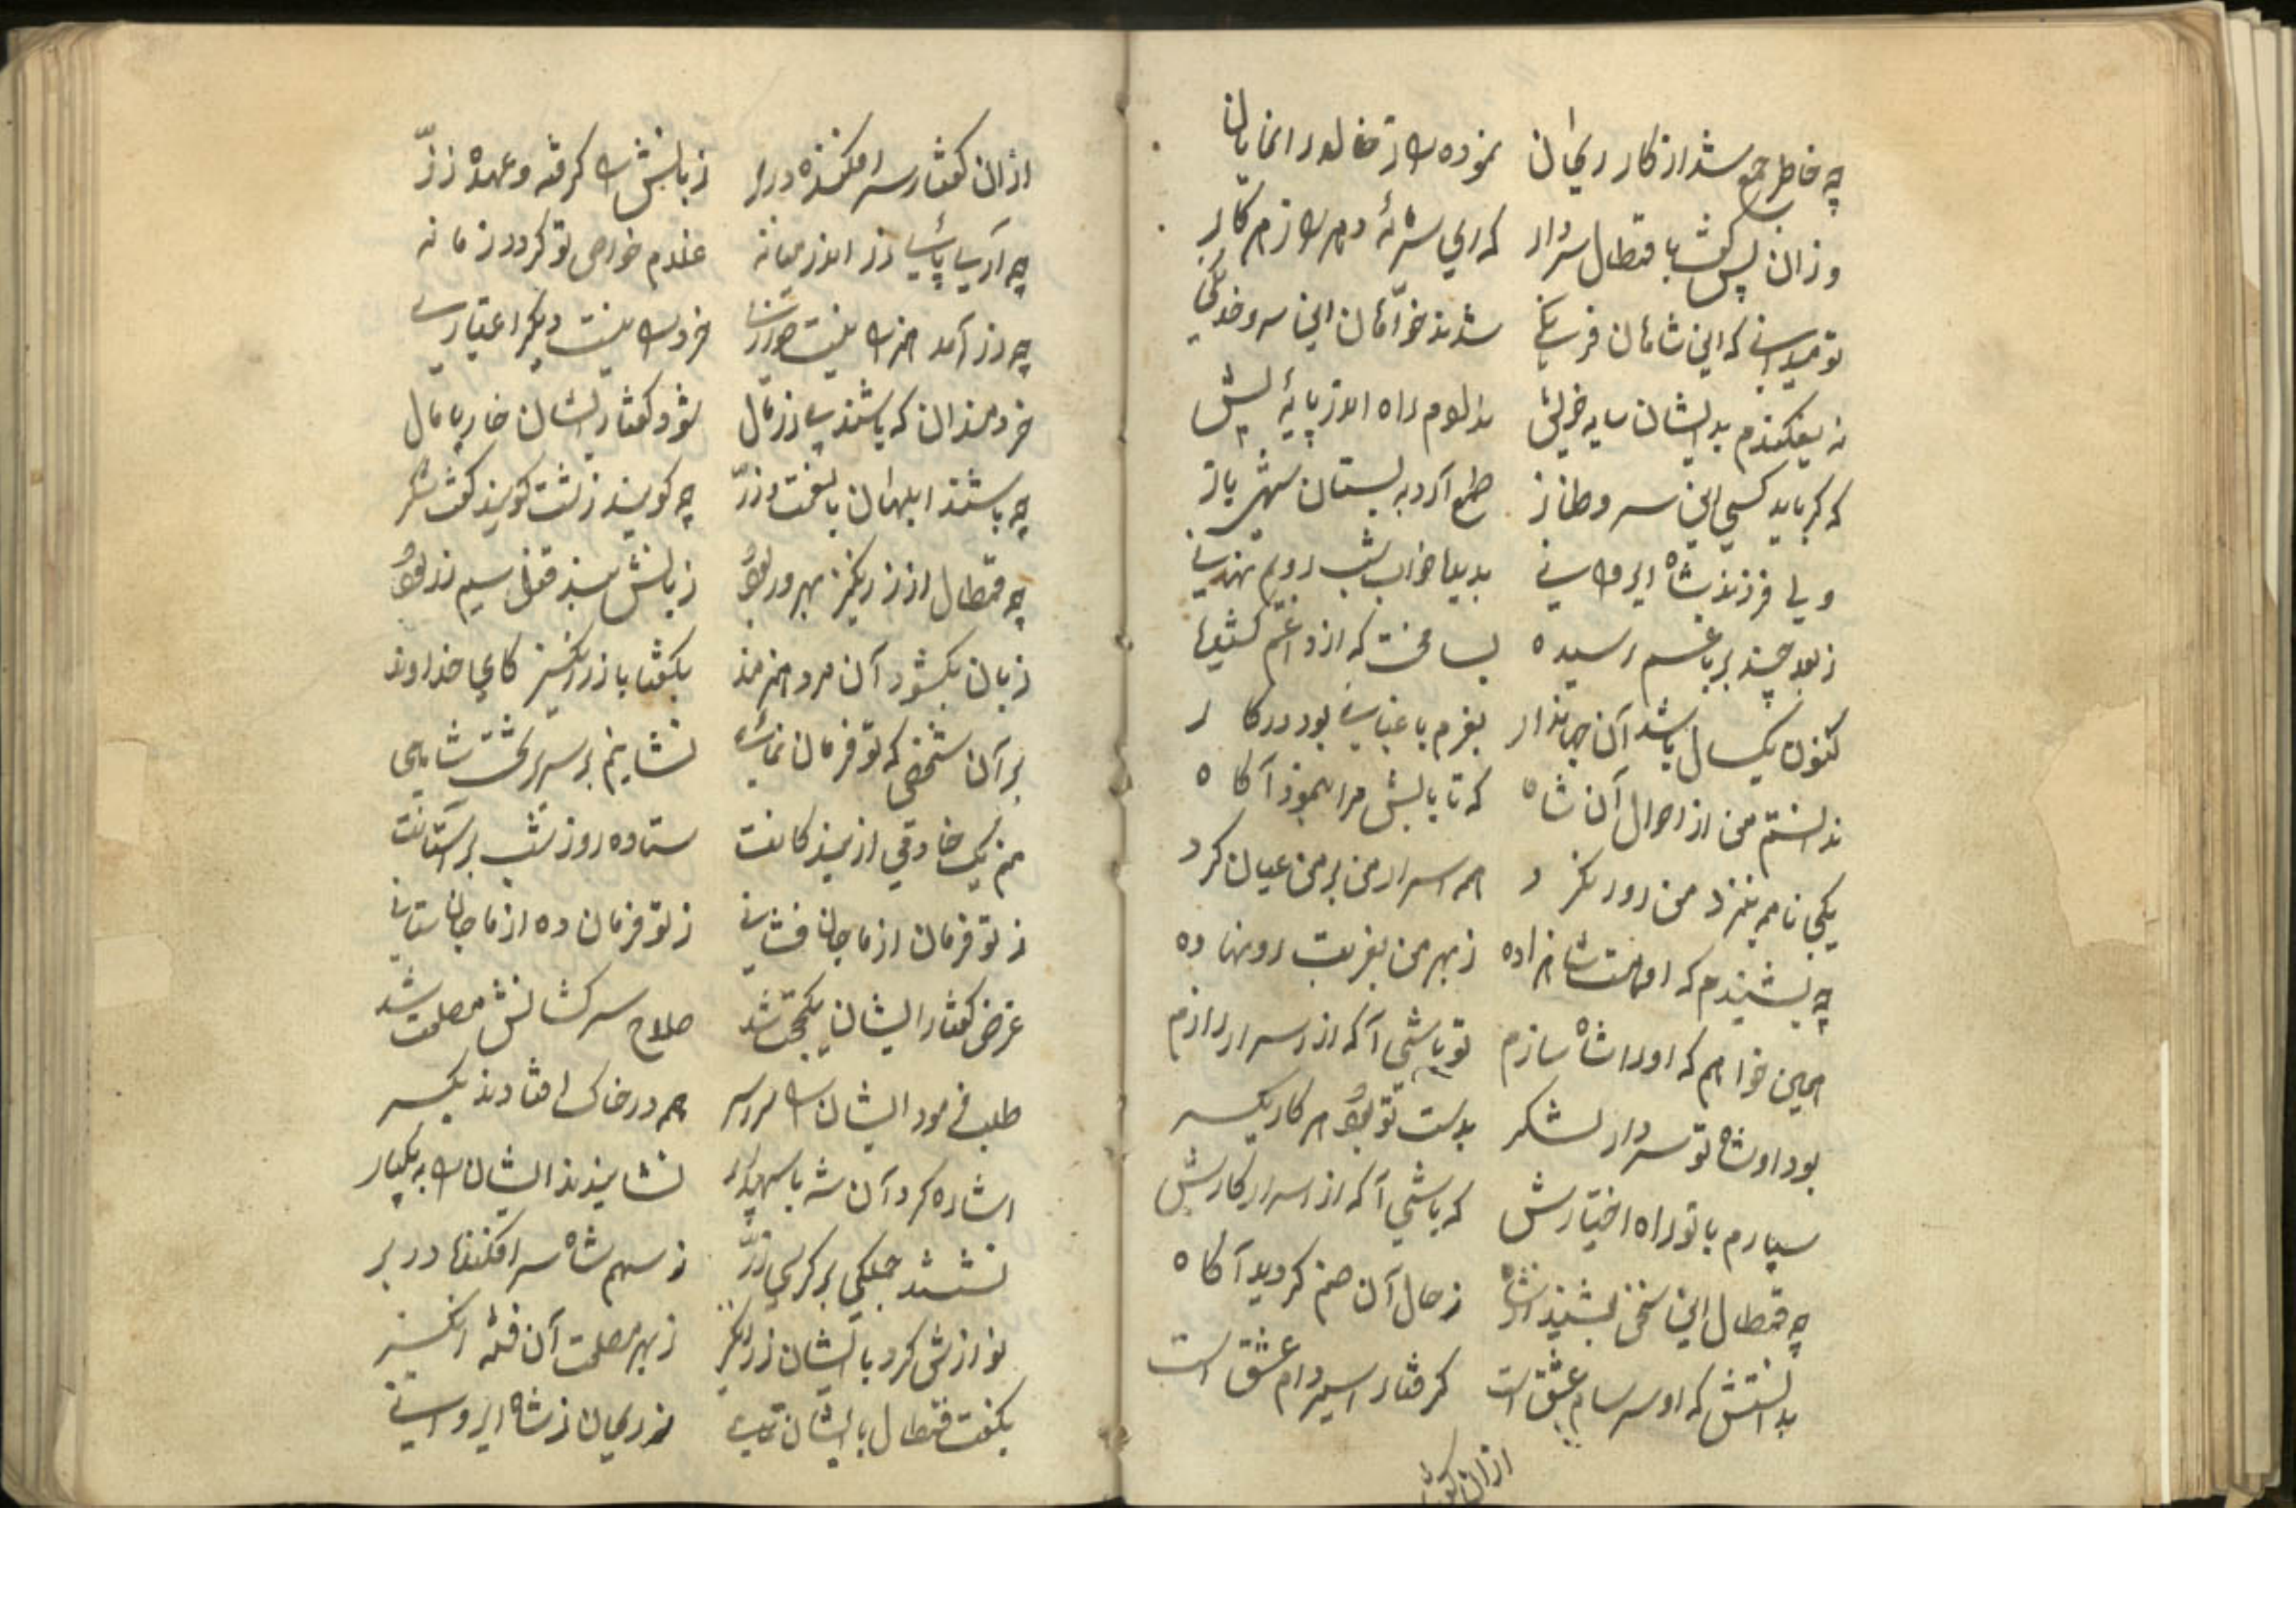 چه خاطر جمع شد از کار ریحان نموده
وزان پس گفت با قنطال سردار که ای
تو میدانی که این شاهان فرنگی شدند خواهان این سرو خدنگی
نه بفکندم بدیشان سایه خویش ندادم راه اندر پایه پیش
که گر باید کسی این سرو طناز طمع آرد به بستان شهر باز
ولی فرزند شاه ایروانی بدیدا خواب شب روی نهانی
ز بعد چند بر باغم رسیده بسا محنت که از داغم کشیده
کنون یکسال باشد آن جهاندار بغزم باغبانی بود در کار
ندانستم من از احوال آن شاه که تا بابش مرا بنمود آگاه
یکی نامه بنزد من روان کرد همه اسرار من بر من عیان کرد
چه بشنیدم که او هست شاهزاده ز بهر من بغربت رو نهاده
همین خواهم که او را شاه سازم تو باشی آگه از اسرار رازم
بود او شاه تو سردار لشکر بدست تو بود هر کار یکسر
سپارم با تو راه اختیارش که باشی آگه از اسرار کارش
چه قنطال این سخن بشنید از شاه ز حال آن صنم گردید آگاه
بدانستش که او سرسام عشق است گرفتار اسیر دام عشق است
از ان گفتار
از ان گفتار سر افکنده در بر زبانش را گرفته وعده زر
چه آسیا زر اندر میانه غلام خواهی تو گردد زمانه
چه زر آمد خرد را نیست دیگر اعتباری
خردمندان که باشند بی زر و مال بود گفتار ایشان خار پامال
چه باشند ابلهان با نعمت و زر چه گویند زشت گویند گفت شکر
چه قنطال از زر انگیز بهره ور بود زبانش بند قفل سیم زر بود
زبان بگشود آن مرد هنرمند بگفتا با زرانگیز کای خداوند
بر آن شخصی که تو فرمان نمائی نشانیم بر سریر تخت شاهی
منم یک خادمی از بندگانت ستاده روز شب بر آستانت
ز تو فرمان از ما جان فشانی ز تو فرمان ده از ما جان ستانی
غرض گفتار ایشان یکجهت شد صلاح سرکشانش مصلحت شد
طلب فرمود ایشان را سراسر همه در خاک افتادند یکسر
اشاره کرد آن شه با سپهدار نشانیدند ایشان را به یکبار
نشستند جملگی بر کرسی زر ز سهم شاه سر افکنده در بر
نوازش کرد با ایشان زرانگیز ز بهر مصلحت آن فتنه انگیز
بگفت قنطال با ایشان ز ریحان ز شاه ایروانی